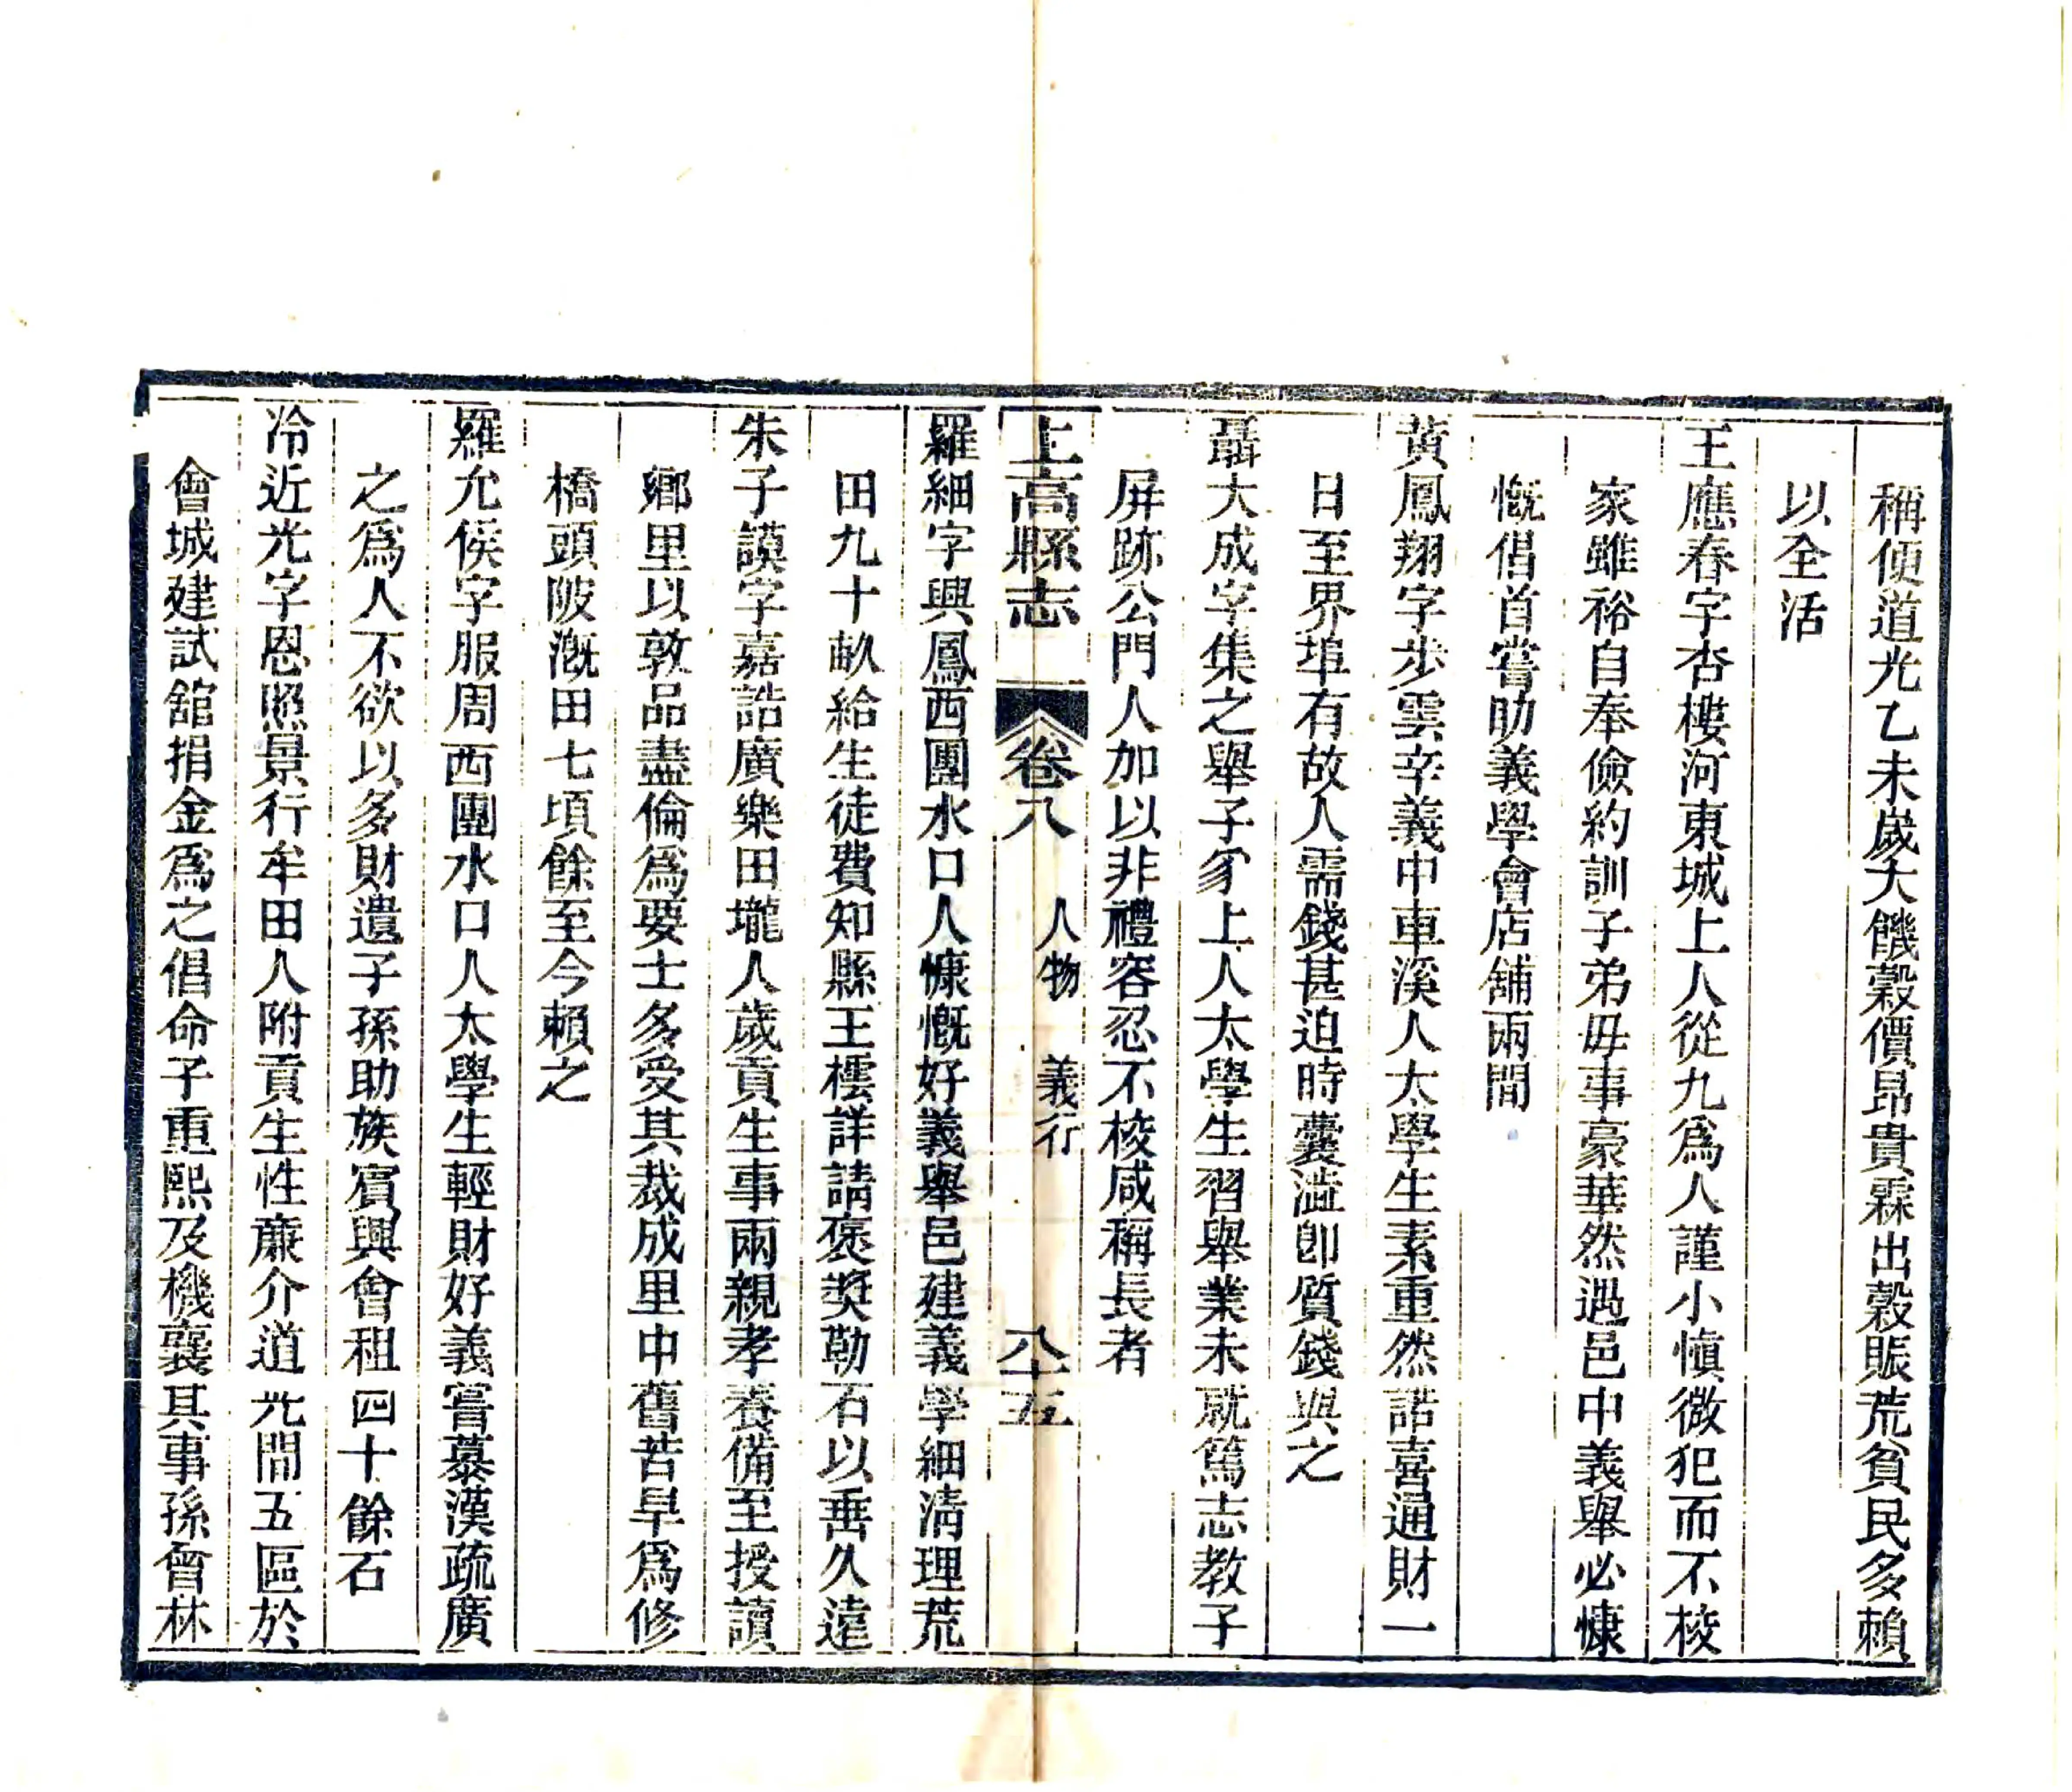 稱偵道光乙未歲大饑穀價昂貴霖出穀賬荒貧民多賴
以全活
王應春字杏樓河東城上人從九爲人謹小愼微犯而不校
家雖裕自奉儉約訓子弟毋事豪華然遇邑中義舉必慷
慨倡首嘗助義學會店舖兩間
黃鳳翔字步雲辛義中車溪人太學生素重然諾喜通財一
日至界埠有故人需錢甚迫時囊澁卽質錢與之
聶大成字集之舉子冢上人太學生習舉業未就篤志教子
屏跡公門人加以非禮容忍不校咸稱長者
上高縣志 卷八 人物 義行 八十五
羅細字興鳳西團水口人慷慨好義舉邑建義學細淸理荒
田九十畝給生徒費知縣王櫺詳請褒奬勒石以垂久遠
朱子謨字嘉誥廣樂田壠人歲貢生事兩親孝養備至授讀
鄉里以敦品盡倫爲要士多受其裁成里中舊苦旱爲修
橋頭陂漑田七頃餘至今賴之
羅允僕字服周西團水口人太學生輕財好義嘗慕漢疏廣
之爲人不欲以多財遺子孫助族賓興會租四十餘石
冷近光字恩照景行牟田人附貢生性廉介道光間五區於
會城建試舘捐金爲之倡命子重熙及機襄其事孫曾林